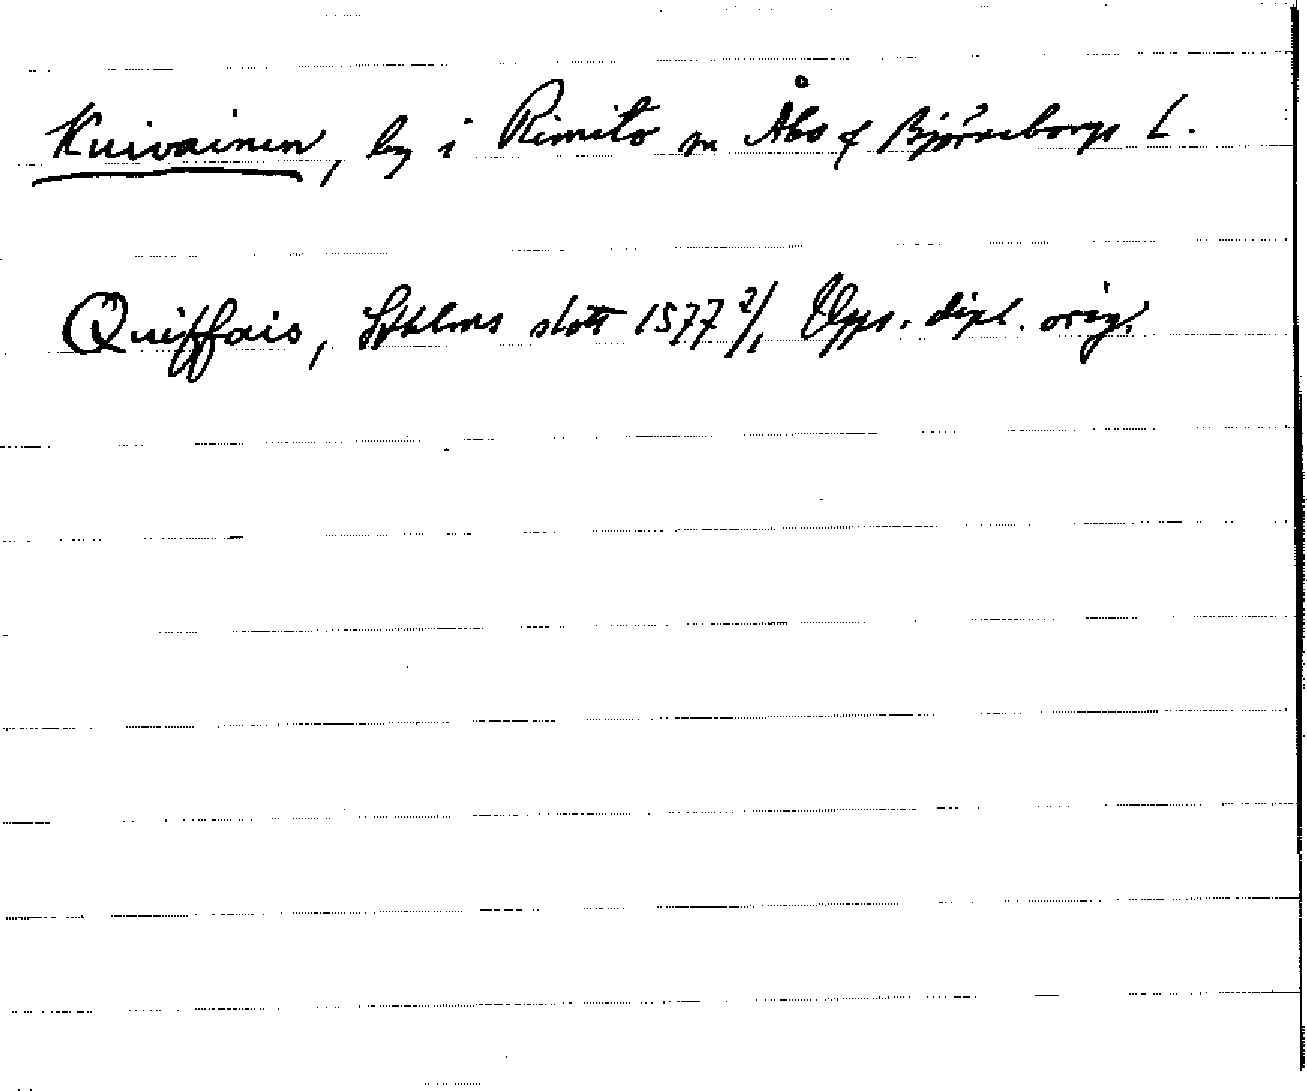 Kuivainen, by i Rimito sn Åbo o Björneborgs L.
Quiffais, Sthlms slott 1577 2/1 Upps. dipl. orig.